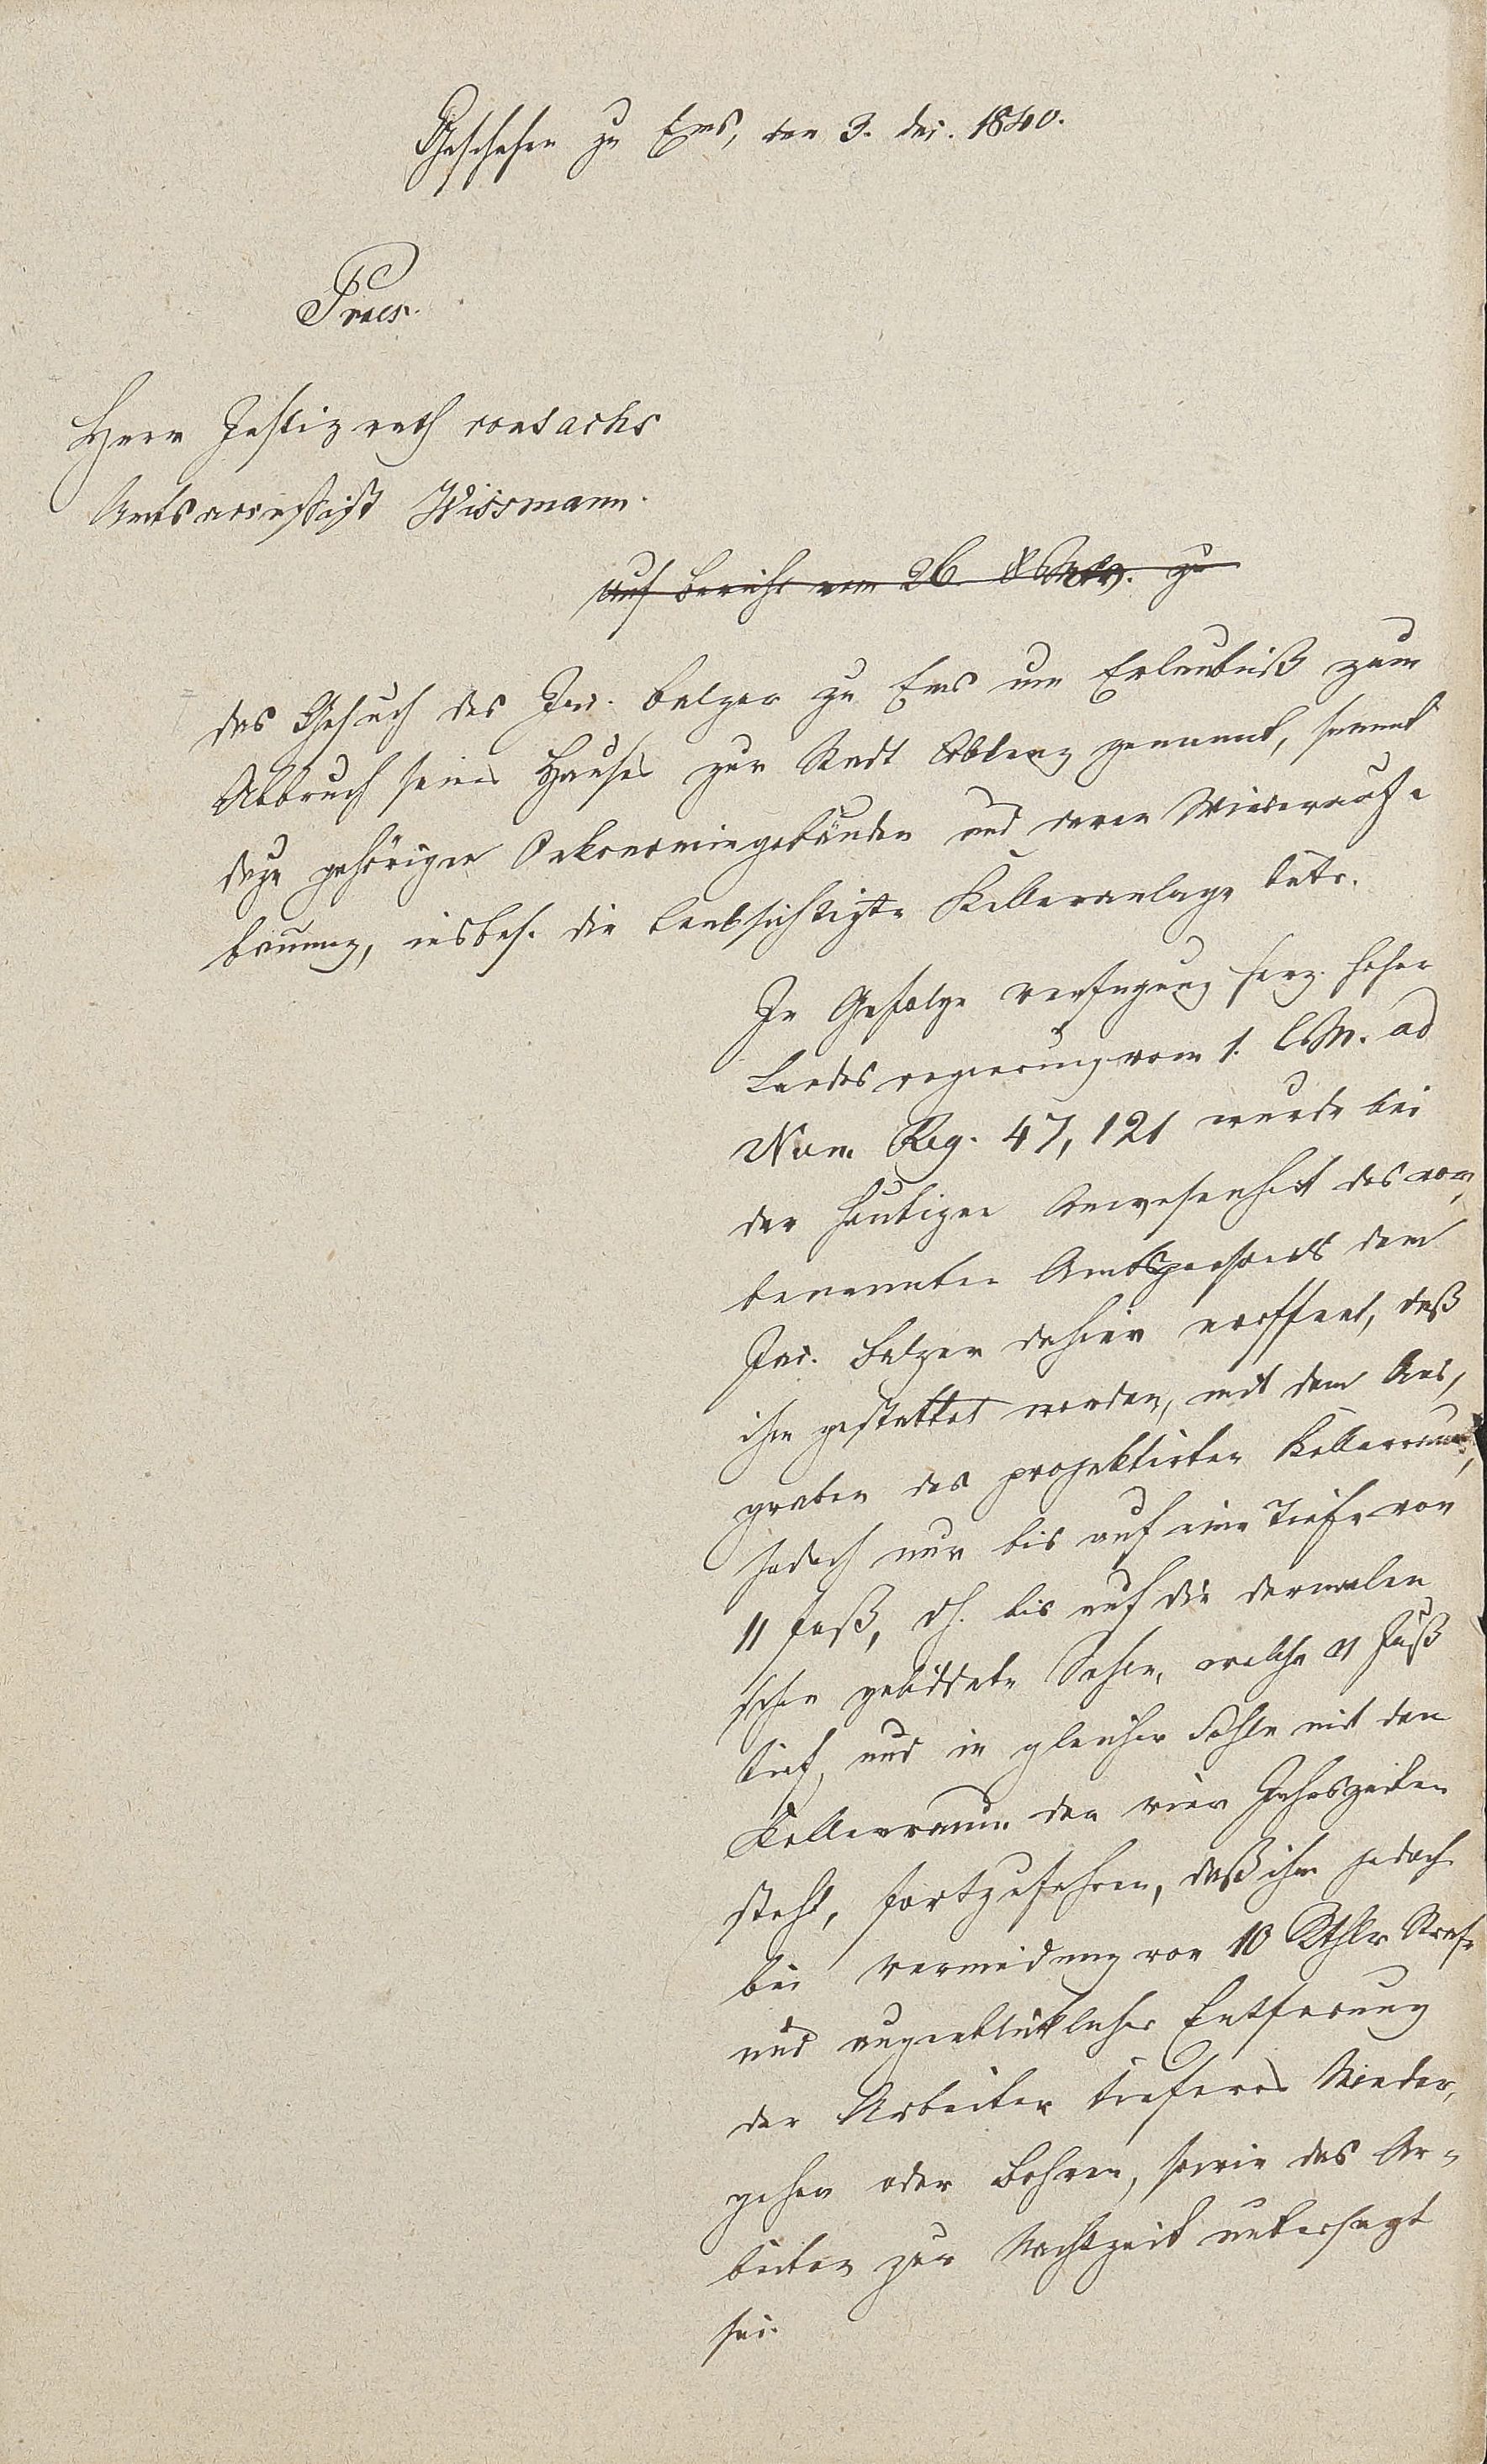 Geschehen zu Ems, den 3. Dez. 1840.
Praes.
Herr Justizrath von Sachs
Amtsaccessist Wissmann.
Auf Bericht vom 26. v. M. zu
das Gesuch des Jac. Balzer zu Ems um Erlaubniß zum
Abbruch seines Hauses zur Stadt Coblenz genannt, sammt
dazu gehörigen Oekonomiegebäuden und deren Wiederauf-
bauung, insbes. die beabsichtigte Kelleranlage betr.
In Gefolge Verfügung herz. hoher
Landesregierung vom 1. l. M. ad
Num. Reg. 47,121 wurde bei
der heutigen Anwesenheit des vor,
benannten Amtspersonals dem
Jac. Balzer dahier eröffnet, daß
ihm gestattet worden, mit dem Aus,
graben des projektirten Kellerraums,
jedoch nur bis auf eine Tiefe von
11 Fuß, d.h. bis auf die dermalen
schon gebildete Sohle, welche 11 Fuß
tief, und in gleicher Sohle mit dem
Kellerraum der vier Jahrszeiten
steht, fortzufahren, daß ihm jedoch
bei Vermeidung von 10 Rthlr Strafe
und augenblicklicher Entfernung
der Arbeiter tieferes Nieder,
gehen oder Bohren, sowie das Ar-
beiten zur Nachtzeit untersagt
sei.